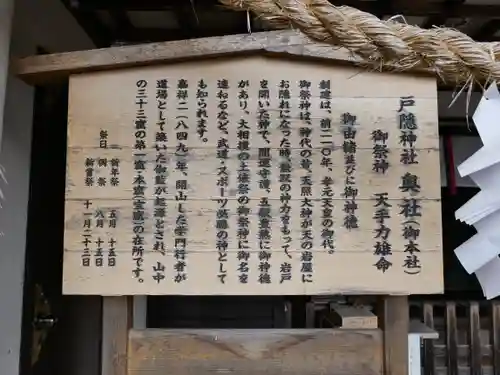 戸隠神社 奥社（御本社）
御祭神 天手力雄命
御由緒並びに御神徳
創建は、前二一〇年、孝元天皇の御代。
御祭神は、神代の昔、天照大神が天の岩屋に
お隠れになった時、無双の神力をもって、岩戸
を開いた神で、開運守護、五穀豊熟に御神徳
があり、大相撲の土俵祭の御祭神に御名を
連ねるなど、武道・スポーツ必勝の神として
も知られます。
嘉祥二（八四九）年、開山した学門行者が
道場として築いた御籠が起源とされ、山中
の三十三窟の第一窟「本窟（宝窟）」の在所です。
祭日
新年祭 五月 十五日
例祭 八月 十五日
新嘗祭 十一月 二十三日